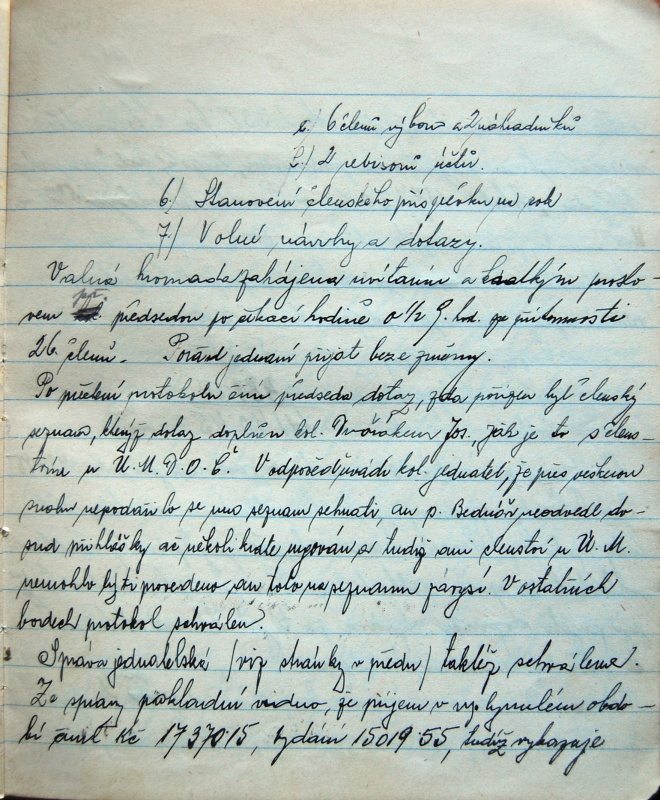 c.) 6 členů výboru a 2 náhradníků
d.) 2 revisorů účtů.
6.) Stanovení členského příspěvku na rok
7.) Volné návrhy a dotazy.
Valná hromada zahájena uvítáním a krátkým proslo-
vem předsedou po čekací hodině o ½ 9. hod. za přítomnosti
26 členů. Pořad jednání přijat beze změny.
Po přečtení protokolu činí předseda dotaz, zda pořízen byl členský
seznam, kterýž dotaz doplněn kol. Dvořákem Jos., jak je to s člens-
tvím u Ú.M.D.O.Č. V odpověď uvádí kol. jednatel, že přes veškerou
snahu nepodařilo se mu seznam sehnati, an p. Bednář neodvedl do-
sud přihlášky ač několikráte urgován a tudíž ani členství u Ú.M.
nemohlo býti provedeno an toto na seznamu závisí. V ostatních
bodech protokol schválen.
Zpráva jednatelská (viz stránky v předu) taktéž schválena.
Ze zprávy pokladní vidno, že příjem v uplynulém obdo-
bí činil Kč 17370.15, vydání 15019.55, tudíž vykazuje